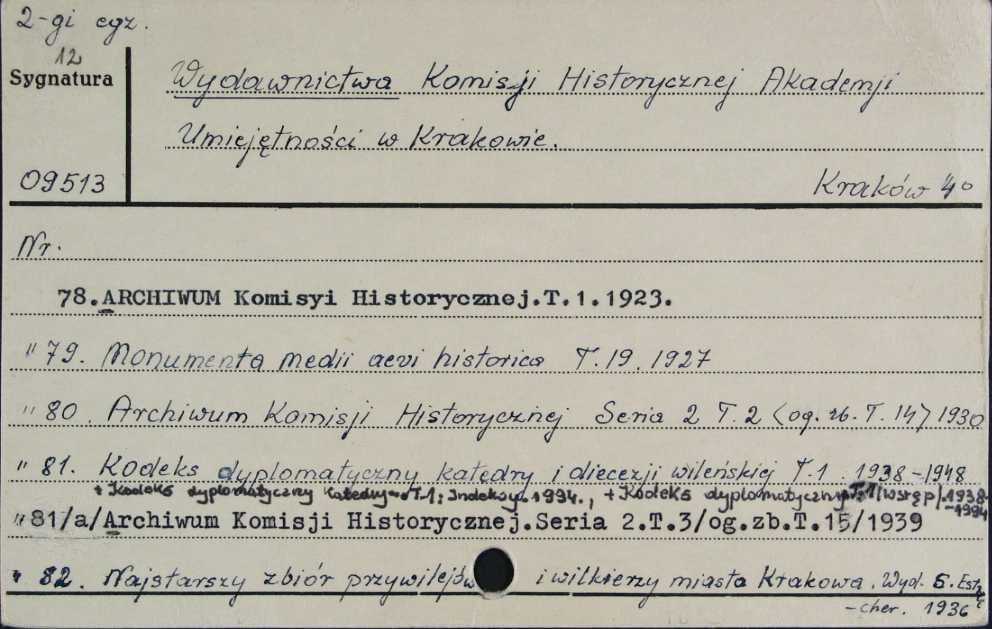 2-gi egz.
12
Sygnatura
Wydawnictwa Komisji Historycznej Akademji
Umiejętności w Krakowie.
09513
Kraków 4°
Nr.
78.ARCHIWUM Komisyi Historycznej.T.1.1923.
" 79. Monumenta medii aevi historica T.19. 1927
" 80. Archiwum Komisji Historycznej Seria 2 T.2 <og. zb. T. 14> 1930
" 81. Kodeks dyplomatyczny katedry i diecezji wileńskiej T.1. 1938-1948
+ Kodeks dyplomatyczny Katedry T.1: Indeksy. 1994., + Kodeks dyplomatyczny T.1/Wstęp/.1938-
-1994
" 81/a/Archiwum Komisji Historycznej.Seria 2.T.3/og.zb.T.15/1939
" 82. Najstarszy zbiór przywilejów i wilkierzy miasta Krakowa. Wyd. S. Estrei
-cher. 1936